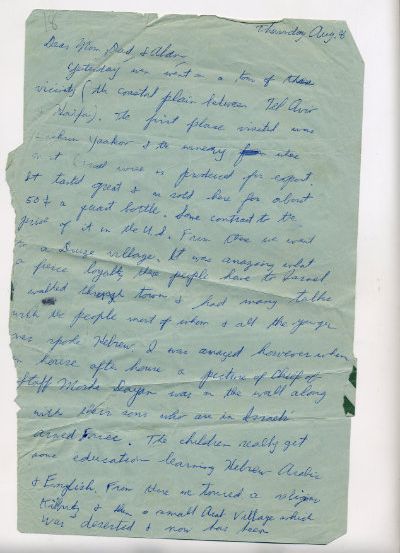 18
Thursday Aug. 8
Dear Mom, Dad, & Alan,
Yesterday we went on a tour of the
vicinity (the coastal plain between Tel Aviv
Haifa). The first place visited was
Yaakov & the winery from
it wine is produced for export.
It tasted great & is sold here for about
50¢ a quart bottle. Some contrast to the
price of it in the U.S. From there we went
to a Druze village. It was amazing what
a fierce loyalty these people have to Israel
walked through town & had many talks
with the people most of whom & all the younger
ones spoke Hebrew. I was amazed however when
in house after house a picture of Chief of
Staff Moshe Dayan was on the wall along
with their sons who are in Israeli
armed Forces. The children really get
some education learning Hebrew Arabic
& English. From there we toured a religious
Kibbutz & then a small Arab Village which
was deserted & now has been